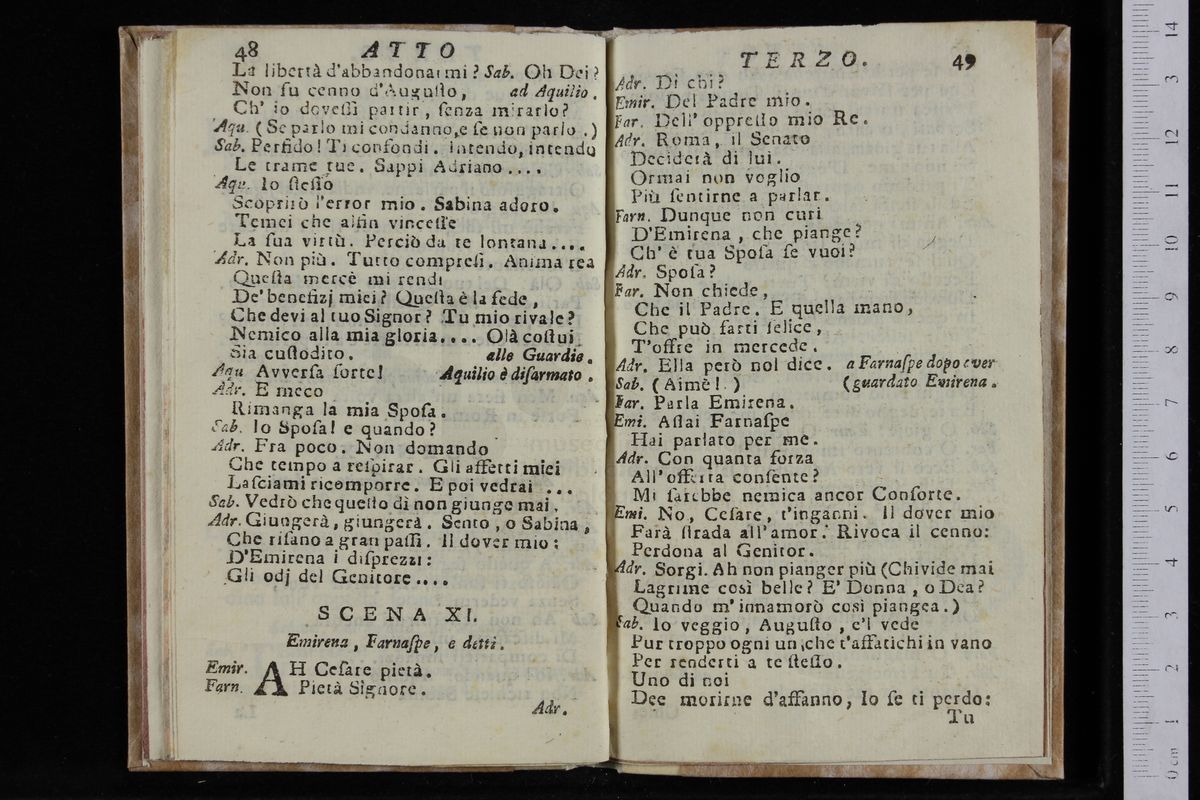 48 ATTO
La libertà d'abbandonarmi? Sab. Oh Dei?
Non fu cenno d'Augusto, ad Aquilio.
Ch' io dovessi partir, senza mirarlo?
Aqu. (Se parlo mi condanno, e se non parlo.)
Sab. Perfido! Ti confondi. intendo, intendo
Le trame tue. Sappi Adriano....
Aqu. Io stesso
Scoprirò l'error mio. Sabina adoro.
Temei che alfin vincesse
La sua virtù. Perciò da te lontana....
Adr. Non più. Tutto compresi. Anima rea
Questa mercè mi rendi
De' benefizj miei? Questa è la fede,
Che devi al tuo Signor? Tu mio rivale?
Nemico alla mia gloria.... Olà costui
Sia custodito. alle Guardie.
Aqu Avversa sorte! Aquilio è disarmato.
Adr. E meco
Rimanga la mia Sposa.
Sab. Io Sposa! e quando?
Adr. Fra poco. Non domando
Che tempo a respirar. Gli affetti miei
Lasciami ricomporre. E poi vedrai ...
Sab. Vedrò che questo dì non giunge mai.
Adr. Giungerà, giungerà. Sento, o Sabina,
Che risano a gran passi. Il dover mio;
D'Emirena i disprezzi:
Gli odj del Genitore....
SCENA XI.
Emirena, Farnaspe, e detti.
Emir. AH Cesare pietà.
Farn. Pietà Signore.
Adr.
TERZO. 49
Adr. Di chi?
Emir. Del Padre mio.
Far. Dell' oppresso mio Re.
Adr. Roma, il Senato
Deciderà di lui.
Ormai non voglio
Più sentirne a parlar.
Farn. Dunque non curi
D'Emirena, che piange?
Ch' è tua Sposa se vuoi?
Adr. Sposa?
Far. Non chiede,
Che il Padre. E quella mano,
Che può farti felice,
T'offre in mercede.
Adr. Ella però nol dice. a Farnaspe dopo aver
Sab. (Aimè!) (guardato Emirena.
Far. Parla Emirena.
Emi. Assai Farnaspe
Hai parlato per me.
Adr. Con quanta forza
All' offerta consente?
Mi sarebbe nemica ancor Consorte.
Emi. No, Cesare, t'inganni. Il dover mio
Farà strada all'amor. Rivoca il cenno:
Perdona al Genitor.
Adr. Sorgi. Ah non pianger più (Chi vide mai
Lagrime così belle? E' Donna, o Dea?
Quando m'innamorò così piangea.)
Sab. Io veggio, Augusto, e'l vede
Pur troppo ogni un, che t'affatichi in vano
Per renderti a te stesso.
Uno di noi
Dee morirne d'affanno, Io se ti perdo:
Tu